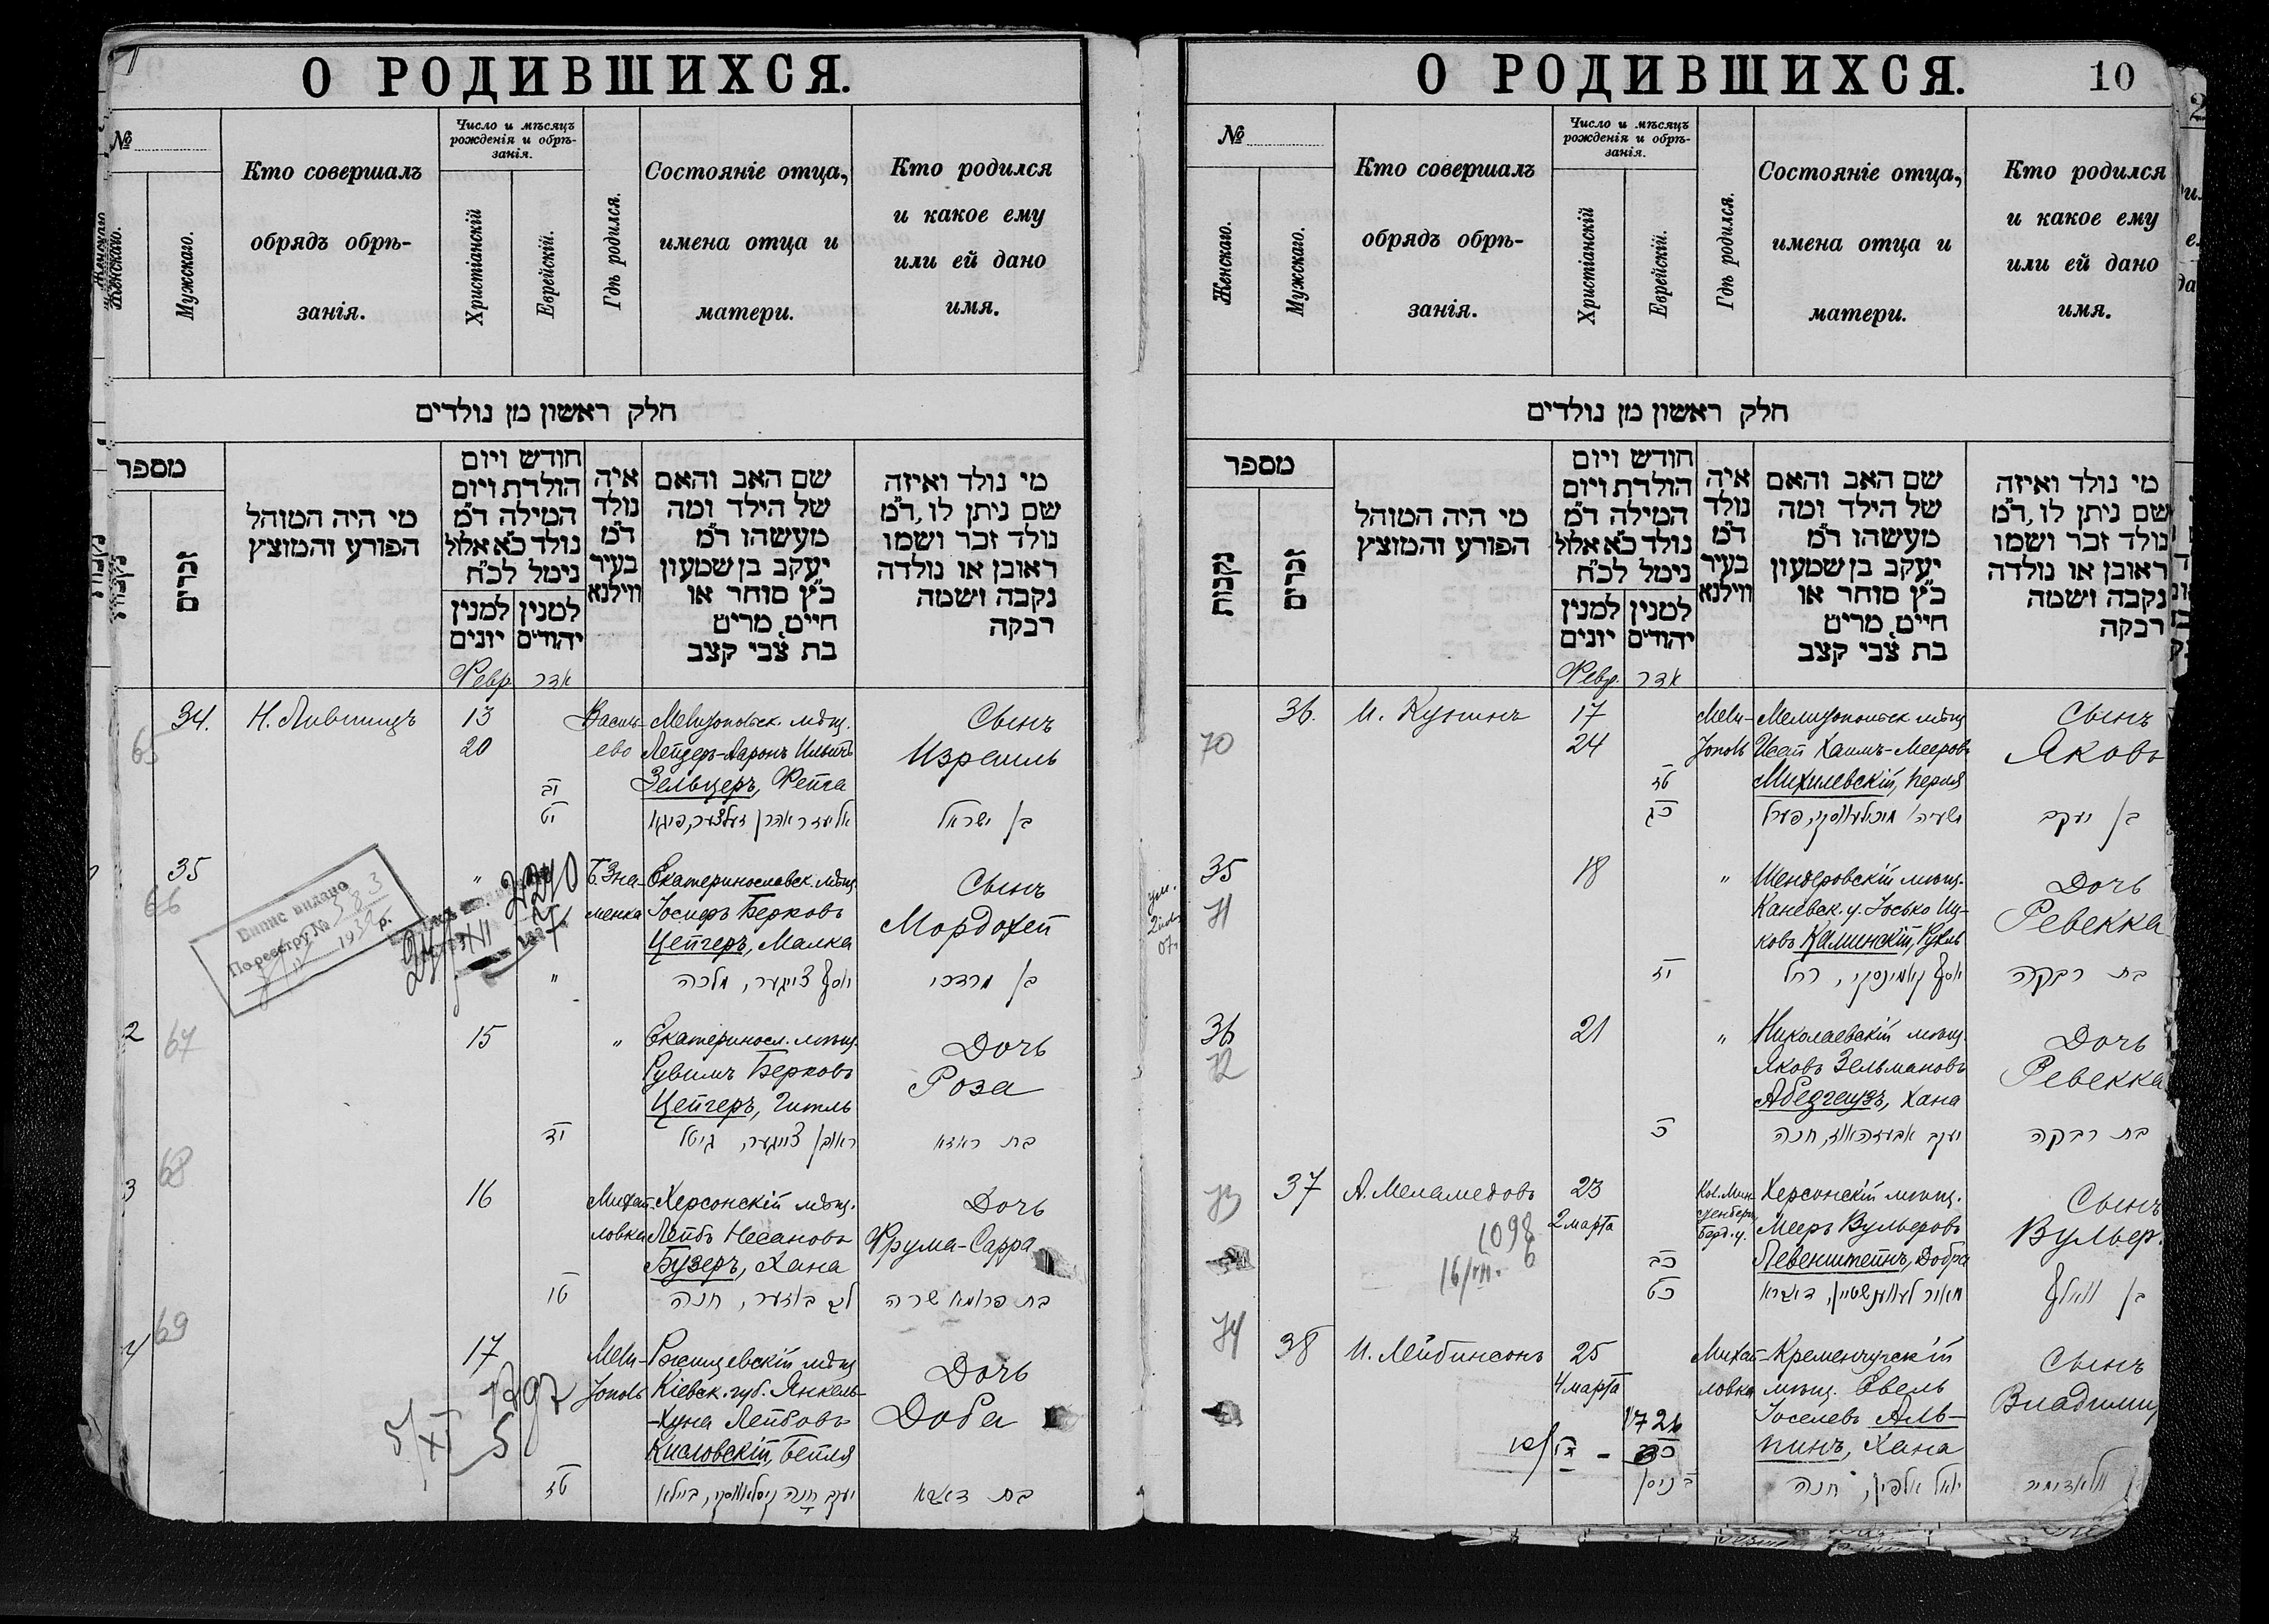 О РОДИВШИХСЯ.
№
Женскаго.
Мужскаго.
Кто совершалъ
обрядъ обрѣ-
занія.
Число и мѣсяцъ
рожденія и обрѣ-
занія.
Христіанскій
Еврейскій.
Гдѣ родился.
Состояніе отца,
имена отца и
матери.
Кто родился
и какое ему
или ей дано
имя.
חלק ראשון מן נולדים
מספר
נקבות
זכרים
מי היה המוהל
הפורע והמוצץ
חודש ויום
הולדת ויום
המילה ד"מ
נולד כ"א אלול
נימל לכ"ח
למנין יונים
למנין יהודים
איה
נולד
ד"מ
בעיר
ווילנא
שם האב והאם
של הילד ומה
מעשהו ד"מ
יעקב בן שמעון
כ"ץ סוחר או
חייט, מרים
בת צבי קצב
מי נולד ואיזה
שם ניתן לו, ד"מ
נולד זכר ושמו
ראובן או נולדה
נקבה ושמה
רבקה
Февр. אדר
34. Н. Лившицъ 13 Василь- Мелитопольск. мѣщ. Сынъ
65 20 ево Лейзеръ-Аронъ Ильичъ Израиль
יב Зельцеръ, Фейга
יט אליעזר אהרן זעלצער, פייגא בן ישראל
35 " 2240 Б. Зна- Екатеринославск. мѣщ. Сынъ
66 менка Іосифъ Берковъ Мордохей
Випис видано
По реестру № 383
193 р.
Цейгеръ, Малка
" יוסף צייגער, מלכה בן מרדכי
2 67 15 " Екатериносл. мѣщ. Дочь
Рувимъ Берковъ Роза
Цейгеръ, Гитль
יד ראובן צייגער, גיטל בת ראזא
3 68 16 Михай- Херсонскій мѣщ. Дочь
ловка Лейбъ Несановъ Фрума-Сарра
Бузеръ, Хана
טו לייב בוזער, חנה בת פרומא שרה
4 69 17 Мели- Ржищевскій мѣщ. Дочь
1292 тополь Кіевск. губ. Янкель-
5/XI 5 -Хуна Лейбовъ Доба
Кисловскій, Бейля
טז יעקב חנה קיסלאווסקי, ביילא בת דאבא
О РОДИВШИХСЯ. 10
№
Женскаго.
Мужскаго.
Кто совершалъ
обрядъ обрѣ-
занія.
Число и мѣсяцъ
рожденія и обрѣ-
занія.
Христіанскій
Еврейскій.
Гдѣ родился.
Состояніе отца,
имена отца и
матери.
Кто родился
и какое ему
или ей дано
имя.
חלק ראשון מן נולדים
מספר
נקבות
זכרים
מי היה המוהל
הפורע והמוצץ
חודש ויום
הולדת ויום
המילה ד"מ
נולד כ"א אלול
נימל לכ"ח
למנין יונים
למנין יהודים
איה
נולד
ד"מ
בעיר
ווילנא
שם האב והאם
של הילד ומה
מעשהו ד"מ
יעקב בן שמעון
כ"ץ סוחר או
חייט, מרים
בת צבי קצב
מי נולד ואיזה
שם ניתן לו, ד"מ
נולד זכר ושמו
ראובן או נולדה
נקבה ושמה
רבקה
Февр. אדר
36. И. Кунинъ 17 Мели- Мелитопольск мѣщ. Сынъ
70 24 тополь Исай Хаимъ-Мееровъ Яковъ
טז Михилевскій, Перля
כג ישעיה מיכילעווסקי, פערל בן יעקב
35 18 " Шендеровскій мѣщ. Дочь
71 Каневск. у. Іосько Иц- Ревекка
ковъ Калинскій, Рухль
יז יוסף קאלינסקי, רחל בת רבקה
36 21 " Николаевскій мѣщ. Дочь
72 Яковъ Зельмановъ Ревекка
Абедгаузъ, Хана
כ יעקב אבעדהאוז, חנה בת רבקה
73 37 А. Меламедовъ 23 Херсонскій мѣщ. Сынъ
1098 2 марта Берд. у. Мееръ Вульфовъ Вульф.
16/VII. 6 כב Левенштейнъ, Добра
כט מאיר לעווענשטיין, דאברא בן וואלף
74 38 И. Лейбинсонъ 25 Михай- Кременчугскій Сынъ
4 марта ловка мѣщ. Евель Владимир
1726 Іоселевъ Аль-
пинъ, Хана
ניסן יואל אלפין, חנה וולאדימיר